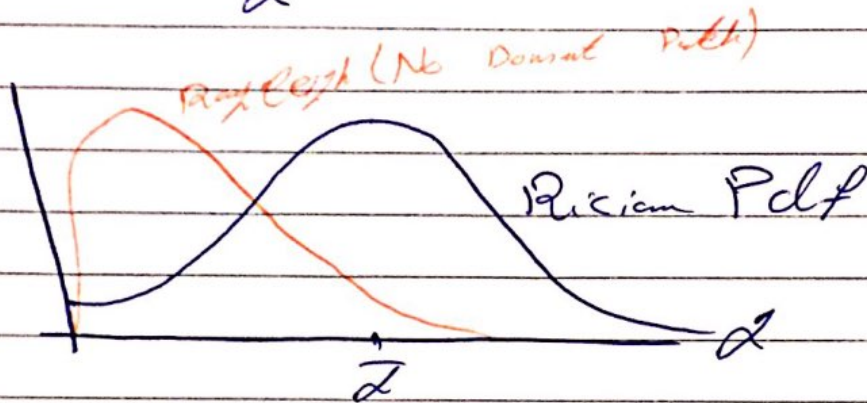 α
Rayleigh (No Domint Path)
Rician Pdf
α
ᾱ